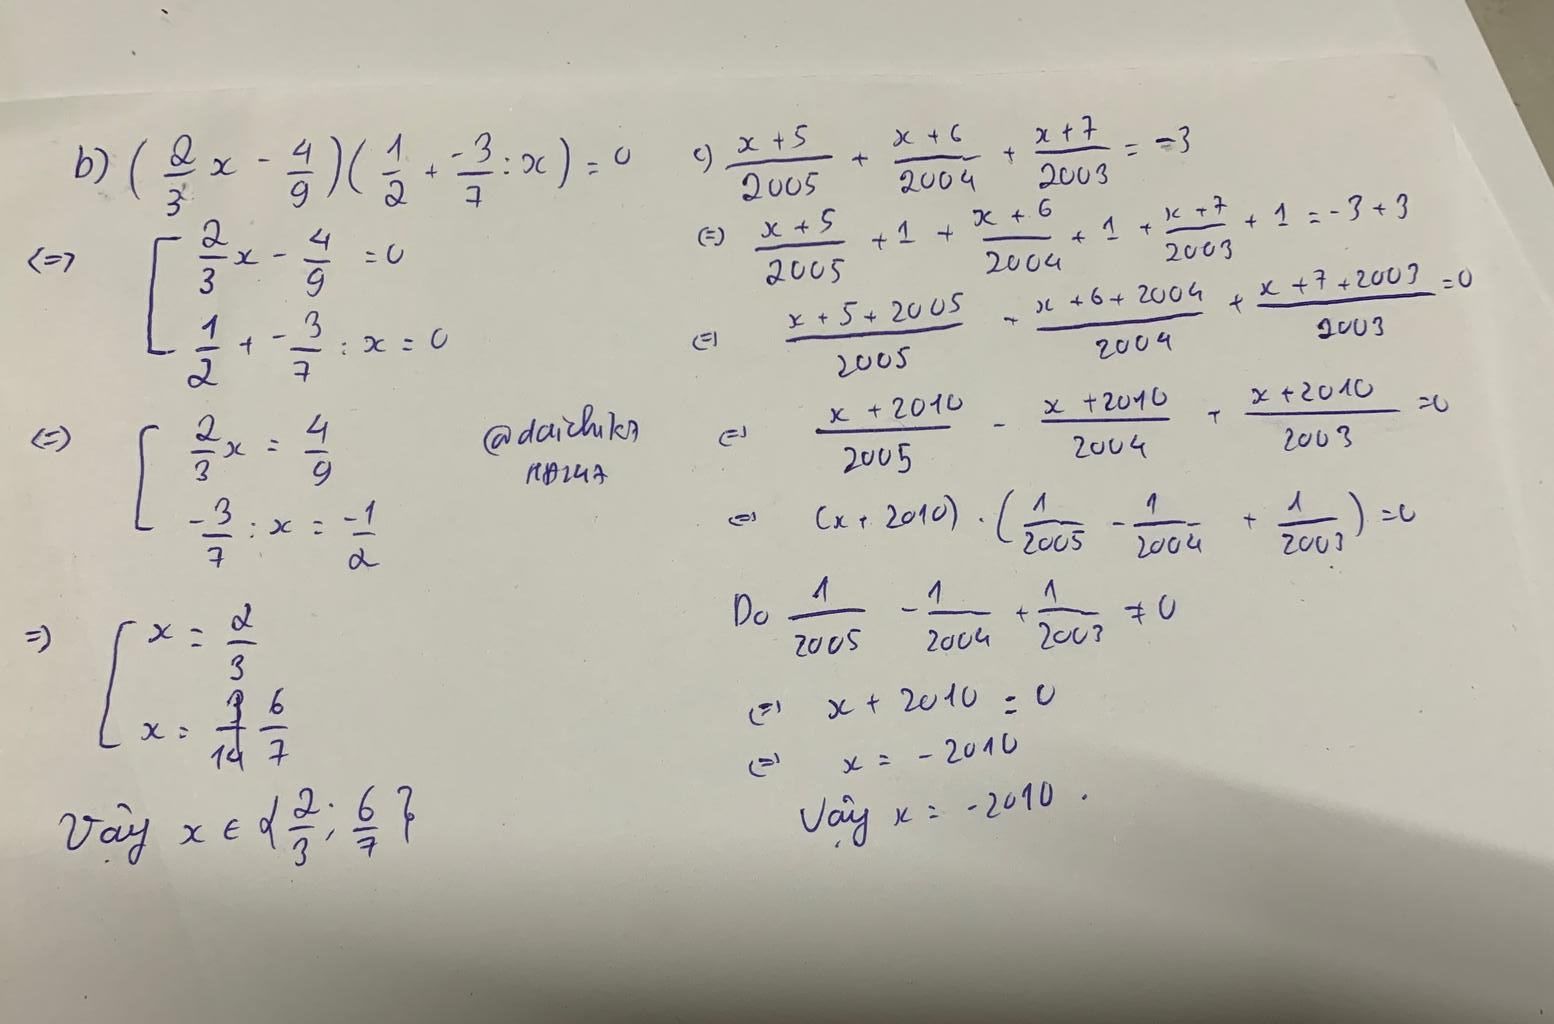 b) (2/3 x - 4/9)(1/2 + -3/7 : x) = 0
<=> [ 2/3 x - 4/9 = 0
1/2 + -3/7 : x = 0
<=> [ 2/3 x = 4/9
-3/7 : x = -1/2
=> [ x = 2/3
x = 6/7
Vậy x ∈ {2/3; 6/7}
@daichika
c) x+5/2005 + x+6/2004 + x+7/2003 = -3
<=> x+5/2005 + 1 + x+6/2004 + 1 + x+7/2003 + 1 = -3+3
<=> x+5+2005/2005 + x+6+2004/2004 + x+7+2003/2003 = 0
<=> x+2010/2005 - x+2010/2004 + x+2010/2003 = 0
<=> (x+2010) . (1/2005 - 1/2004 + 1/2003) = 0
Do 1/2005 - 1/2004 + 1/2003 ≠ 0
<=> x + 2010 = 0
<=> x = -2010
Vậy x = -2010.